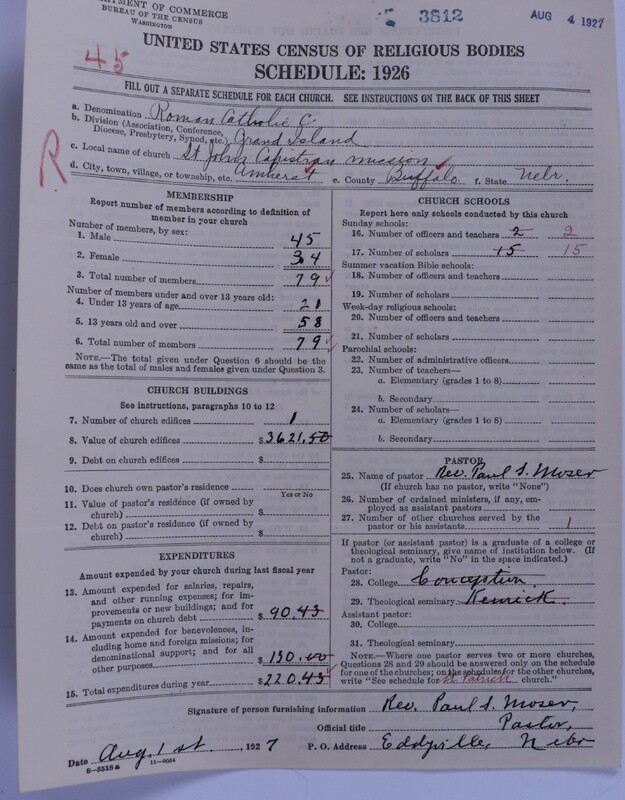 DEPARTMENT OF COMMERCE
BUREAU OF THE CENSUS
WASHINGTON
3812
AUG 4 1927
45
UNITED STATES CENSUS OF RELIGIOUS BODIES
SCHEDULE: 1926
FILL OUT A SEPARATE SCHEDULE FOR EACH CHURCH. SEE INSTRUCTIONS ON THE BACK OF THIS SHEET
R
a. Denomination Roman Catholic C.
b. Division (Association, Conference, Diocese, Presbytery, Synod, etc.) Grand Island
c. Local name of church St Johns Capistran mission
d. City, town, village, or township, etc. Amherst e. County Buffalo f. State Nebr.
MEMBERSHIP
Report number of members according to definition of
member in your church
Number of members, by sex:
1. Male 45
2. Female 34
3. Total number of members 79
Number of members under and over 13 years old:
4. Under 13 years of age 21
5. 13 years old and over 58
6. Total number of members 79
NOTE.—The total given under Question 6 should be the
same as the total of males and females given under Question 3.
CHURCH BUILDINGS
See instructions, paragraphs 10 to 12
7. Number of church edifices 1
8. Value of church edifices $3621.50
9. Debt on church edifices $
10. Does church own pastor's residence?
Yes or No
11. Value of pastor's residence (if owned by
church) $
12. Debt on pastor's residence (if owned by
church) $
EXPENDITURES
Amount expended by your church during last fiscal year
13. Amount expended for salaries, repairs,
and other running expenses; for im-
provements or new buildings; and for
payments on church debt $90.43
14. Amount expended for benevolences, in-
cluding home and foreign missions; for
denominational support; and for all
other purposes $130.00
15. Total expenditures during year $220.43
CHURCH SCHOOLS
Report here only schools conducted by this church
Sunday schools:
16. Number of officers and teachers 2 2
17. Number of scholars 15 15
Summer vacation Bible schools:
18. Number of officers and teachers
19. Number of scholars
Week-day religious schools:
20. Number of officers and teachers
21. Number of scholars
Parochial schools:
22. Number of administrative officers
23. Number of teachers—
a. Elementary (grades 1 to 8)
b. Secondary
24. Number of scholars—
a. Elementary (grades 1 to 8)
b. Secondary
PASTOR
25. Name of pastor Rev. Paul S. Moser
(If church has no pastor, write "None")
26. Number of ordained ministers, if any, em-
ployed as assistant pastors
27. Number of other churches served by the
pastor or his assistants 1
If pastor (or assistant pastor) is a graduate of a college or
theological seminary, give name of institution below. (If
not a graduate, write "No" in the space indicated.)
Pastor:
28. College Conception.
29. Theological seminary Kenrick.
Assistant pastor:
30. College
31. Theological seminary
NOTE.—Where one pastor serves two or more churches,
Questions 28 and 29 should be answered only on the schedule
for one of the churches; on the schedules for the other churches,
write "See schedule for St Patrick church."
Signature of person furnishing information Rev. Paul S. Moser
Official title Pastor,
Date Aug. 1st, 1927 P. O. Address Eddyville, Nebr
8—5518a 11—9054